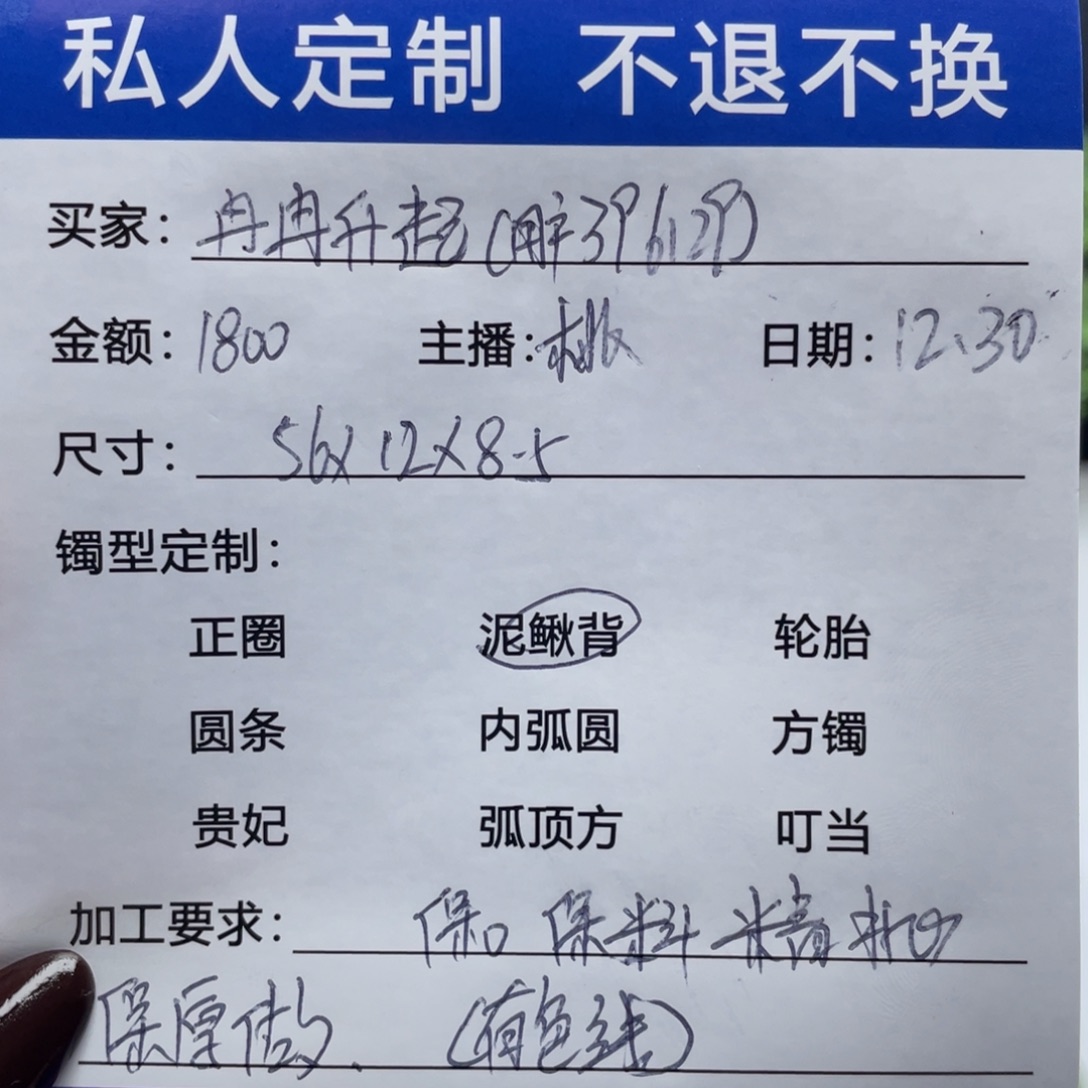 私人定制 不退不换
买家：冉冉升起(胖396129)
金额：1800 主播：桃 日期：12.30
尺寸：56×12×8.5
镯型定制：
正圈 泥鳅背 轮胎
圆条 内弧圆 方镯
贵妃 弧顶方 叮当
加工要求：保口 保料 精抛
保厚做、(有色线)